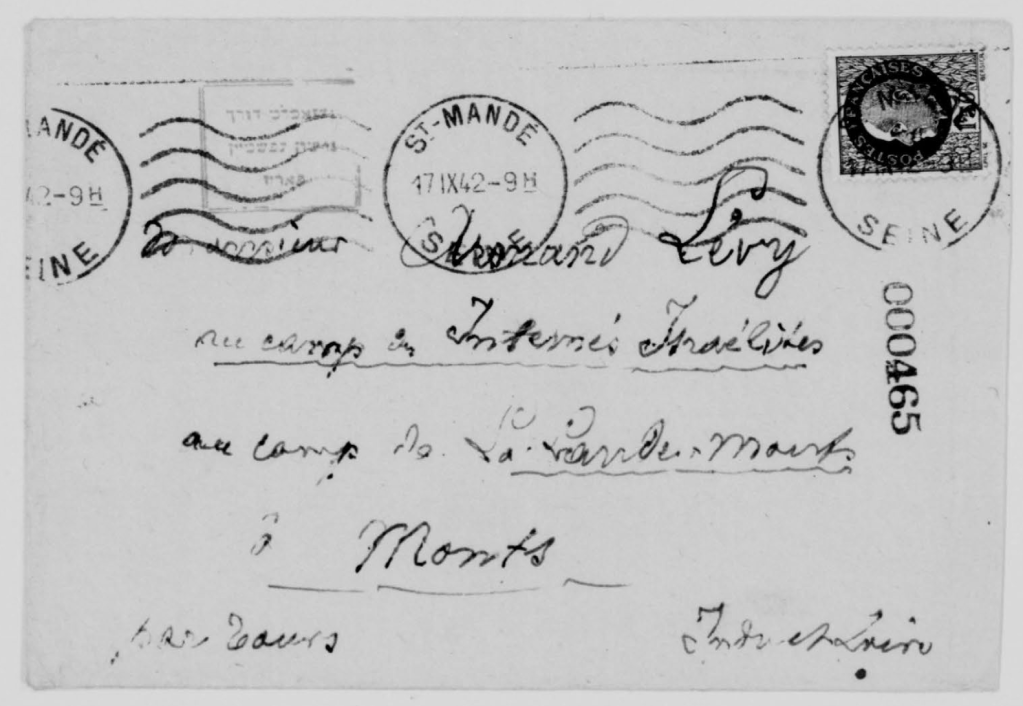 ST-MANDÉ
17 IX 42-9H
SEINE
ANDÉ
42-9H
EINE
POSTES FRANÇAISES
SEINE
געזאמלט דורך
פאריז
Monsieur Armand Lévy
au camp des Internés Israélites
au camp de La Lande-Monts
à Monts
par Tours
Indre et Loire
000465